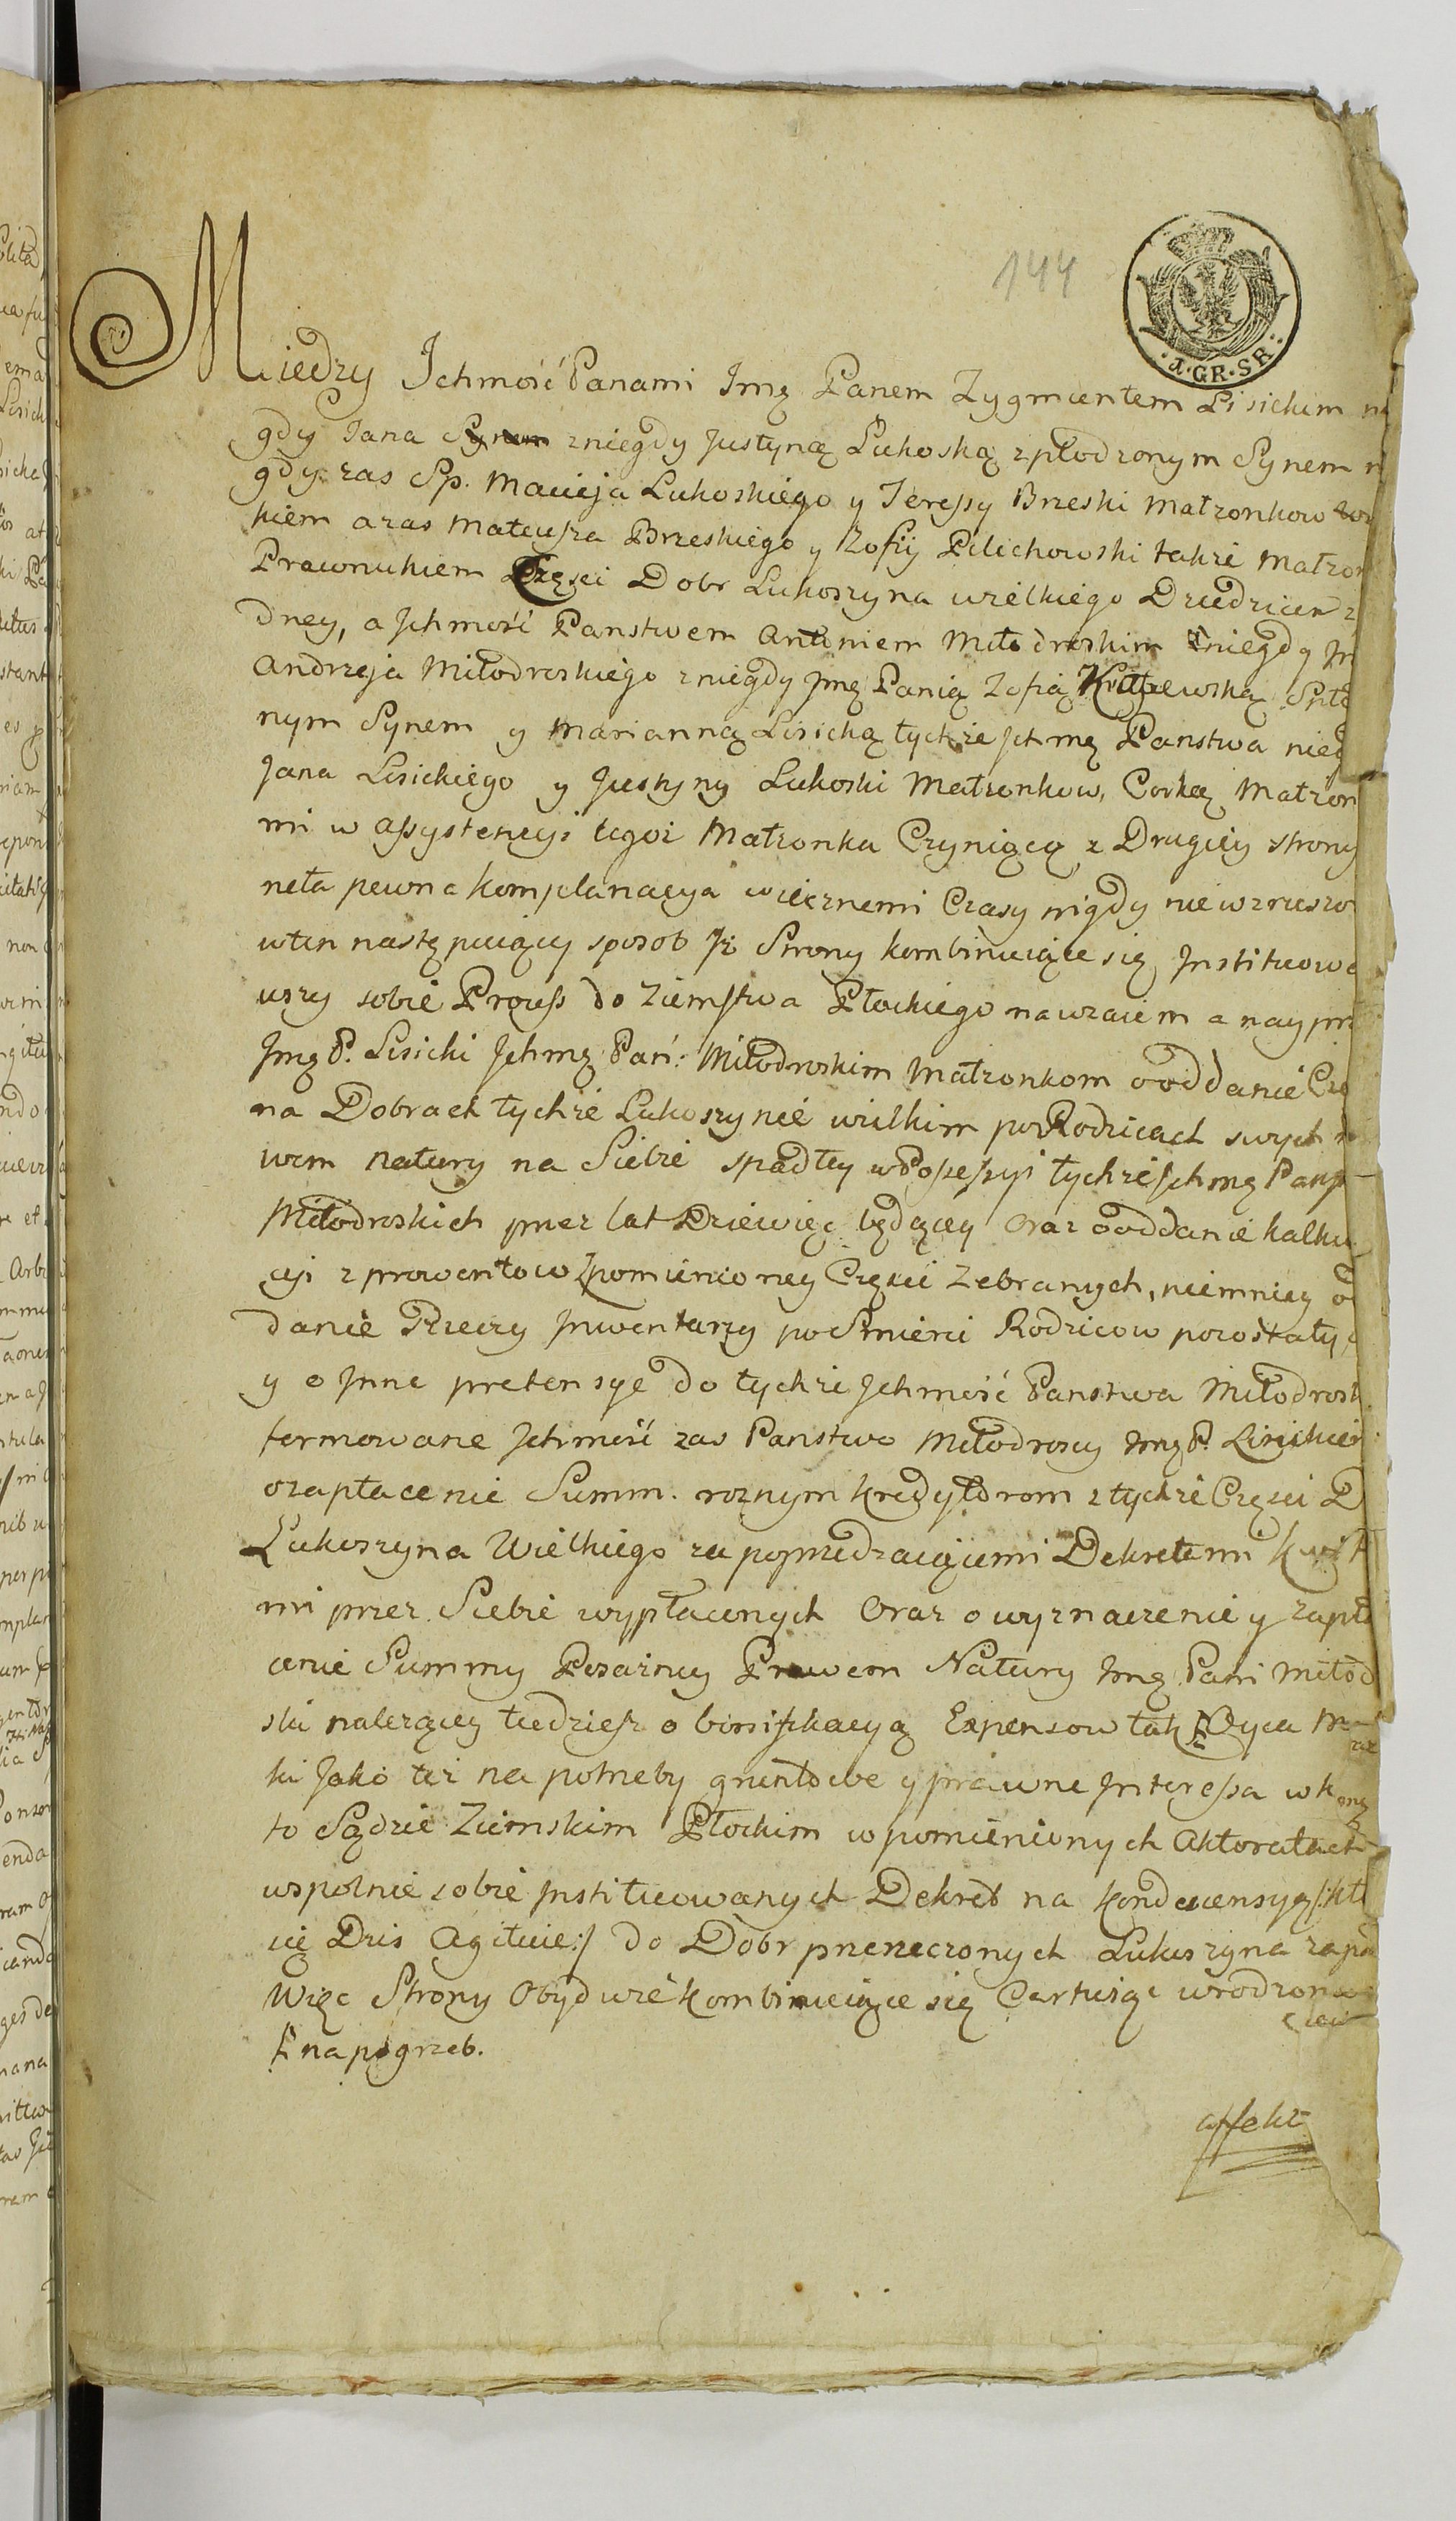 144
4.GR.SR.
Miedzy Ichmość Panami Img Panem Zygmuntem Lisickim
gdy Jana z niegdy Justyną Lukoską zpłodzonym Synem
gdy zas Sp. Macieja Lukoskiego y Teressy Brzeski Matzonkow
kiem azas Mateusza Brzeskiego y Zofij Pilichowski takze Matzon
Prawnukiem Częsci Dobr Lukoszyna wielkiego Dziedzicem z
dney, a Jchmość Panstwem Antoniem Miłodroskim niegdy
Andrzeja Miłodroskiego z niegdy Jmę Panią Zofią Spło
nym Synem y Marianną Lisicką tychze Jchmę Panstwa nieg
Jana Lisickiego y Justyny Lukoski Matzonkow, Corką Matzon
mi w assystencyi tegoz Matzonka Czyniącą z Drugiey strony
neła pewna komplanacya wiecznemi Czasy nigdy niewzruszo
wten następuiący sposob Jz Strony kombinuiące się Instituowa
wszy sobie Process do Ziemstwa Płockiego nawzaiem a nayprz
Jmę P. Lisicki Jchmę Pań: Miłodroskim Matzonkom o oddanie Czę
na Dobrach tychze Lukoszynie wielkim po Rodzicach swych
wem natury na Siebie spadłey w Possessyi tychze Jchmę Pans
Miłodroskich przez lat Dziewięc będącey oraz o oddanie kalku
cyi z prowentow Zpomienioney Częsci Zebranych, niemniey o
danie Rzeczy Inwentarzy po Smierci Rodzicow pozostały
y o Inne pretensye do tychze Jchmość Panstwa Miłodrosk
formowane Jchmość zas Panstwo Miłodroscy Jmę P. Lisickie
ozapłacenie Summ. roznym kredytorom z tychze Częsci D
Lukoszyna Wielkiego za poprzedzaiącemi Dekretami kwit
mi przez Siebie wypłaconych oraz o wyznaczenie y zapła
cenie Summy Posazney Prawem Natury Jmę Pani Miłod
ski nalezącey tudziesz o bonifikacyą Expensow tak # Oyca M
ki Jako tez na potrzeby gruntowe y prawne Interessa w
to Sądzie Ziemskim Płockim wpomienionych Aktoratach
wspolnie sobie Instituowanych Dekret na kondescensyą /:kt
się Dzis Agituie:/ do Dobr przerzeczonych Lukoszyna zapa
Więc Strony Obydwie kombinuiące się Certusząc wrodzon
# na pogrzeb.
affekt